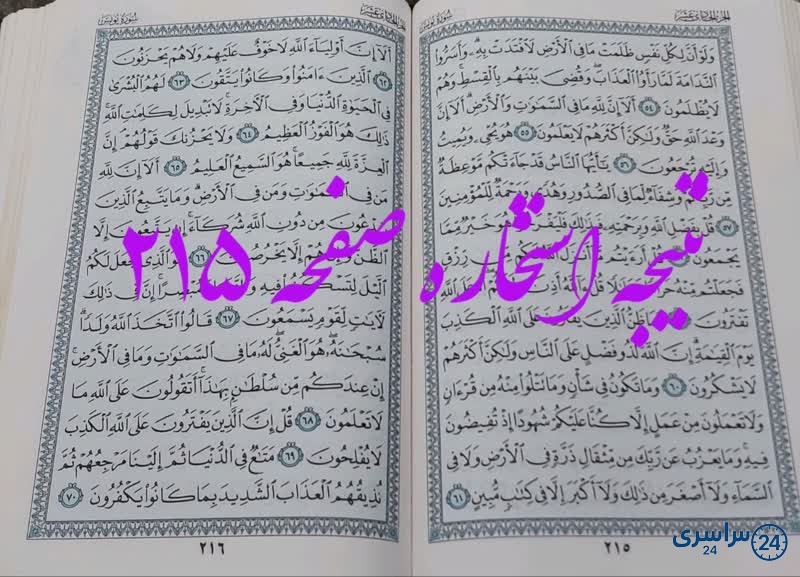 الجزء الحادي عشر
سورة يونس
وَلَوْ أَنَّ لِكُلِّ نَفْسٍ ظَلَمَتْ مَا فِي ٱلْأَرْضِ لَٱفْتَدَتْ بِهِۦ وَأَسَرُّوا۟
ٱلنَّدَامَةَ لَمَّا رَأَوُا۟ ٱلْعَذَابَ وَقُضِىَ بَيْنَهُم بِٱلْقِسْطِ وَهُمْ
لَا يُظْلَمُونَ ٥٤ أَلَآ إِنَّ لِلَّهِ مَا فِي ٱلسَّمَٰوَٰتِ وَٱلْأَرْضِ أَلَآ إِنَّ
وَعْدَ ٱللَّهِ حَقٌّ وَلَٰكِنَّ أَكْثَرَهُمْ لَا يَعْلَمُونَ ٥٥ هُوَ يُحْىِۦ وَيُمِيتُ
وَإِلَيْهِ تُرْجَعُونَ ٥٦ يَٰٓأَيُّهَا ٱلنَّاسُ قَدْ جَآءَتْكُم مَّوْعِظَةٌ
مِّن رَّبِّكُمْ وَشِفَآءٌ لِّمَا فِي ٱلصُّدُورِ وَهُدًى وَرَحْمَةٌ لِّلْمُؤْمِنِينَ
٥٧ قُلْ بِفَضْلِ ٱللَّهِ وَبِرَحْمَتِهِۦ فَبِذَٰلِكَ فَلْيَفْرَحُوا۟ هُوَ خَيْرٌ مِّمَّا
يَجْمَعُونَ ٥٨ قُلْ أَرَءَيْتُم مَّآ أَنزَلَ ٱللَّهُ لَكُم مِّن رِّزْقٍ
فَجَعَلْتُم مِّنْهُ حَرَامًا وَحَلَٰلًا قُلْ ءَآللَّهُ أَذِنَ لَكُمْ أَمْ عَلَى ٱللَّهِ
تَفْتَرُونَ ٥٩ وَمَا ظَنُّ ٱلَّذِينَ يَفْتَرُونَ عَلَى ٱللَّهِ ٱلْكَذِبَ
يَوْمَ ٱلْقِيَٰمَةِ إِنَّ ٱللَّهَ لَذُو فَضْلٍ عَلَى ٱلنَّاسِ وَلَٰكِنَّ أَكْثَرَهُمْ
لَا يَشْكُرُونَ ٦٠ وَمَا تَكُونُ فِي شَأْنٍ وَمَا تَتْلُوا۟ مِنْهُ مِن قُرْءَانٍ
وَلَا تَعْمَلُونَ مِنْ عَمَلٍ إِلَّا كُنَّا عَلَيْكُمْ شُهُودًا إِذْ تُفِيضُونَ
فِيهِ وَمَا يَعْزُبُ عَن رَّبِّكَ مِن مِّثْقَالِ ذَرَّةٍ فِي ٱلْأَرْضِ وَلَا فِي
ٱلسَّمَآءِ وَلَآ أَصْغَرَ مِن ذَٰلِكَ وَلَآ أَكْبَرَ إِلَّا فِي كِتَٰبٍ مُّبِينٍ ٦١
٢١٥
سورة يونس
أَلَآ إِنَّ أَوْلِيَآءَ ٱللَّهِ لَا خَوْفٌ عَلَيْهِمْ وَلَا هُمْ يَحْزَنُونَ
٦٢ ٱلَّذِينَ ءَامَنُوا۟ وَكَانُوا۟ يَتَّقُونَ ٦٣ لَهُمُ ٱلْبُشْرَىٰ
فِي ٱلْحَيَوٰةِ ٱلدُّنْيَا وَفِي ٱلْءَاخِرَةِ لَا تَبْدِيلَ لِكَلِمَٰتِ ٱللَّهِ
ذَٰلِكَ هُوَ ٱلْفَوْزُ ٱلْعَظِيمُ ٦٤ وَلَا يَحْزُنكَ قَوْلُهُمْ إِنَّ
ٱلْعِزَّةَ لِلَّهِ جَمِيعًا هُوَ ٱلسَّمِيعُ ٱلْعَلِيمُ ٦٥ أَلَآ إِنَّ لِلَّهِ
مَن فِي ٱلسَّمَٰوَٰتِ وَمَن فِي ٱلْأَرْضِ وَمَا يَتَّبِعُ ٱلَّذِينَ
يَدْعُونَ مِن دُونِ ٱللَّهِ شُرَكَآءَ إِن يَتَّبِعُونَ إِلَّا
ٱلظَّنَّ وَإِنْ هُمْ إِلَّا يَخْرُصُونَ ٦٦ هُوَ ٱلَّذِى جَعَلَ لَكُمُ
ٱلَّيْلَ لِتَسْكُنُوا۟ فِيهِ وَٱلنَّهَارَ مُبْصِرًا إِنَّ فِي ذَٰلِكَ
لَءَايَٰتٍ لِّقَوْمٍ يَسْمَعُونَ ٦٧ قَالُوا۟ ٱتَّخَذَ ٱللَّهُ وَلَدًا
سُبْحَٰنَهُۥ هُوَ ٱلْغَنِىُّ لَهُۥ مَا فِي ٱلسَّمَٰوَٰتِ وَمَا فِي ٱلْأَرْضِ
إِنْ عِندَكُم مِّن سُلْطَٰنٍۭ بِهَٰذَآ أَتَقُولُونَ عَلَى ٱللَّهِ مَا
لَا تَعْلَمُونَ ٦٨ قُلْ إِنَّ ٱلَّذِينَ يَفْتَرُونَ عَلَى ٱللَّهِ ٱلْكَذِبَ
لَا يُفْلِحُونَ ٦٩ مَتَٰعٌ فِي ٱلدُّنْيَا ثُمَّ إِلَيْنَا مَرْجِعُهُمْ ثُمَّ
نُذِيقُهُمُ ٱلْعَذَابَ ٱلشَّدِيدَ بِمَا كَانُوا۟ يَكْفُرُونَ ٧٠
٢١٦
نتیجه استخاره صفحه ۲۱۵
سراسری
24
24